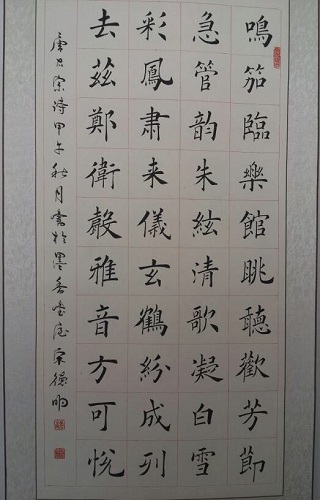 鳴笳臨樂館眺聽歡芳節
急管韵朱絃清歌凝白雪
彩鳳肅来儀玄鶴紛成列
去茲鄭衛聲雅音方可悅
唐太宗詩甲午秋月書於墨香宋德明